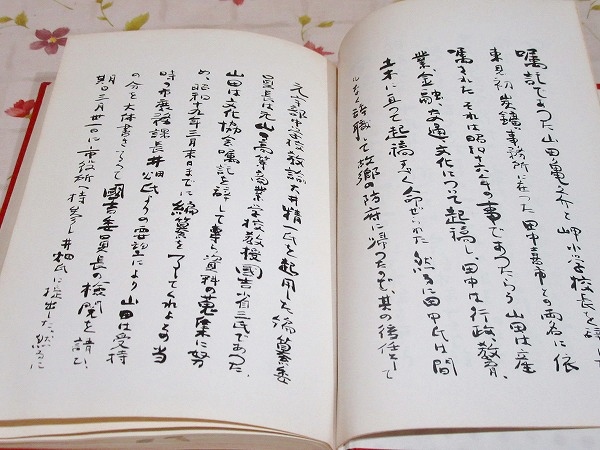 嘱託であった山田亀之介と岬小学校長を辞し
東見初炭鉱事務所に在った田中喜市との両名に依
嘱された それは昭和十六年の事であったらう 山田は産
業、金融、交通、文化について起稿し、田中は行政、教育、
土木に亘って起稿すべく命ぜられた 然るに田中氏は間
もなく辞職して故郷の防府に帰ったので、其の後任として
元宇部中学校教諭大井精一氏を起用した 編纂委
員長元山口高等商業学校教授國吉省三氏であった。
山田は文化協会嘱託を辞して専ら資料の蒐集に努
め、昭和十九年三月末日までに編纂を了してくれよとの当
時の市庶務課長井畑氏よりの要望により 山田は受持
の分を大体書き了って國吉委員長の検閲を請ひ、
期日三月卅一日に市役所へ持参し井畑氏に提出した、然るに